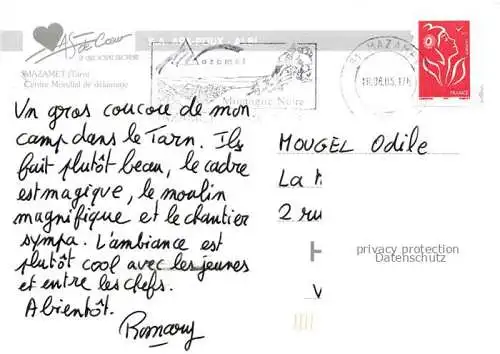 As de Cœur
MAZAMET (Tarn)
Centre Mondial de délainage
APA-POUX - ALBI
Mazamet
Montagne Noire
81 MAZAMET
18.08.05
FRANCE
Un gros coucou de mon
camp dans le Tarn. Ils
fait plutôt beau, le cadre
est magique, le moulin
magnifique et le chantier
sympa. L'ambiance est
plutôt cool avec les jeunes
et entre les chefs.
A bientôt.
Romary
MOUGEL Odile
La
2 ru
privacy protection
Datenschutz
V